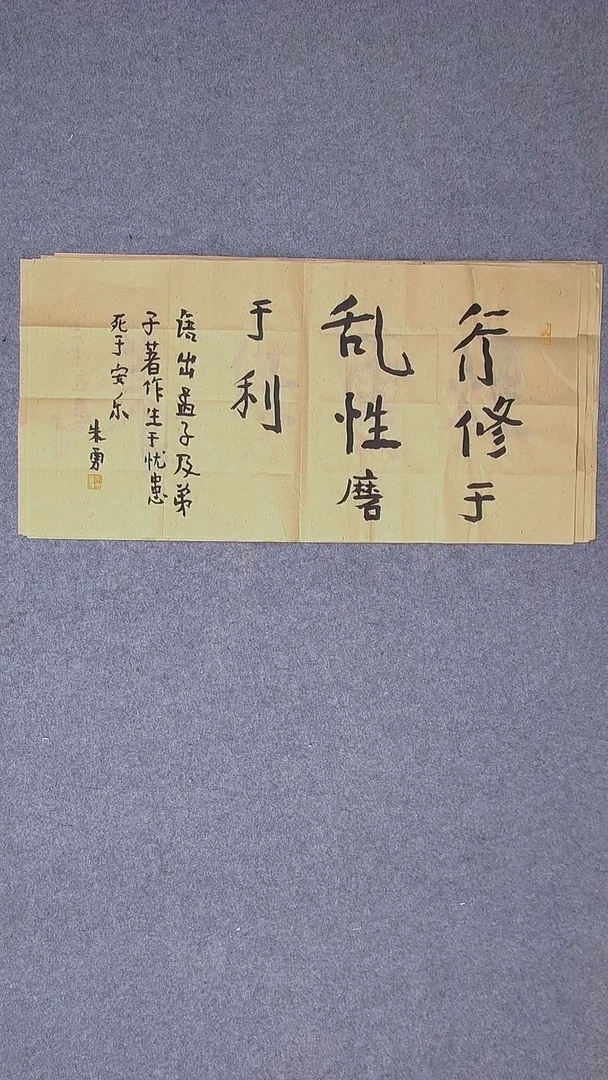 行修于
乱性磨
于利
语出孟子及弟
子著作生于忧患
死于安乐
朱勇